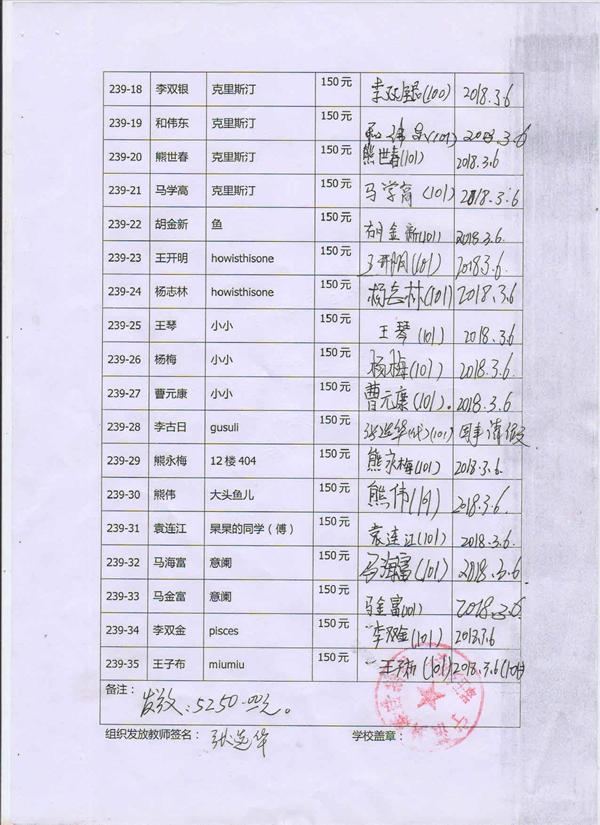 239-18 李双银 克里斯汀 150元 李双银(100) 2018.3.6
239-19 和伟东 克里斯汀 150元 (101) 2018.3.6
239-20 熊世春 克里斯汀 150元 熊世春(101) 2018.3.6
239-21 马学高 克里斯汀 150元 马学高(101) 2018.3.6
239-22 胡金新 鱼 150元 胡金新(101) 2018.3.6.
239-23 王开明 howisthisone 150元 王开明(101) 2018.3.6.
239-24 杨志林 howisthisone 150元 杨志林(101) 2018.3.6
239-25 王琴 小小 150元 王琴(101) 2018.3.6
239-26 杨梅 小小 150元 杨梅(101) 2018.3.6
239-27 曹元康 小小 150元 曹元康(101). 2018.3.6
239-28 李古日 gusuli 150元 张进华(代)(101)
239-29 熊永梅 12楼404 150元 熊永梅(101) 2018.3.6
239-30 熊伟 大头鱼儿 150元 熊伟 2018.3.6.
239-31 袁连江 杲杲的同学（傅） 150元 袁连江(101) 2018.3.6.
239-32 马海富 意阑 150元 马海富(101) 2018.3.6.
239-33 马金富 意阑 150元 马金富(101) 2018.3.6
239-34 李双金 pisces 150元 李双金(101) 2018.3.6
239-35 王子布 miumiu 150元 王子布(101) 2018.3.6
备注：
发放：5250.00元。
组织发放教师签名： 学校盖章：